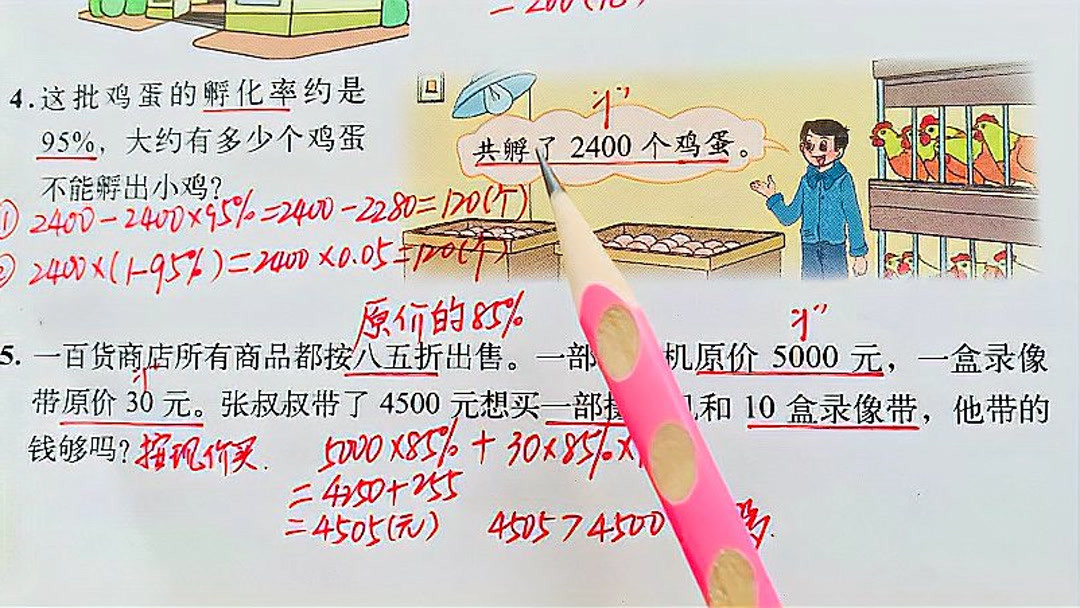 = 200(
4.这批鸡蛋的孵化率约是
95%，大约有多少个鸡蛋
不能孵出小鸡？
共孵了 2400 个鸡蛋。
“1”
① 2400-2400×95%=2400-2280=120(个)
② 2400×(1-95%)=2400×0.05=120(个)
原价的85%
“1”
5. 一百货商店所有商品都按八五折出售。一部 机原价 5000 元，一盒录像
“1”
带原价 30 元。张叔叔带了 4500 元想买一部摄 机和 10 盒录像带，他带的
钱够吗？按现价买. 5000×85% + 30×85%×1
=4250+255
=4505(元) 4505>4500